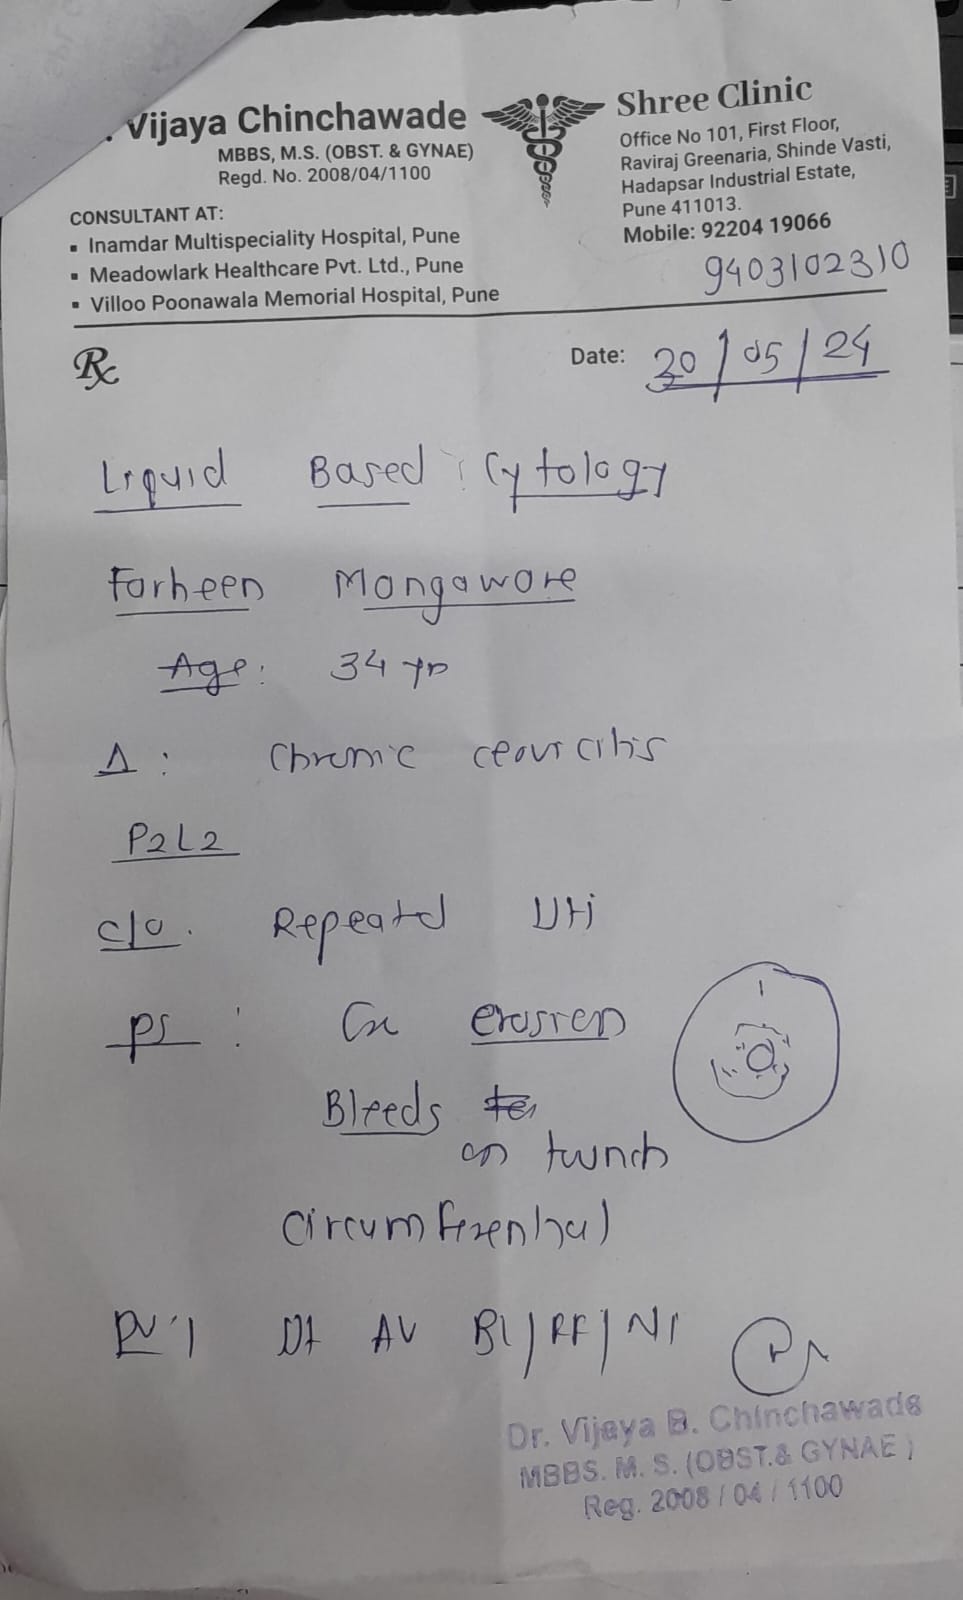 . Vijaya Chinchawade
MBBS, M.S. (OBST. & GYNAE)
Regd. No. 2008/04/1100
CONSULTANT AT:
▪ Inamdar Multispeciality Hospital, Pune
▪ Meadowlark Healthcare Pvt. Ltd., Pune
▪ Villoo Poonawala Memorial Hospital, Pune
Shree Clinic
Office No 101, First Floor,
Raviraj Greenaria, Shinde Vasti,
Hadapsar Industrial Estate,
Pune 411013.
Mobile: 92204 19066
9403102310
Rx
Date: 30/05/24
Liquid Based Cytology
Farheen Mangaware
Age: 34 yr
Δ: Chronic
P2L2
c/o. Repeated UTI
PS: Cx erosion
Bleeds
on
circumferential
PV: Ut AV
Dr. Vijaya B. Chinchawade
MBBS. M. S. (OBST.& GYNAE)
Reg. 2008 / 04 / 1100